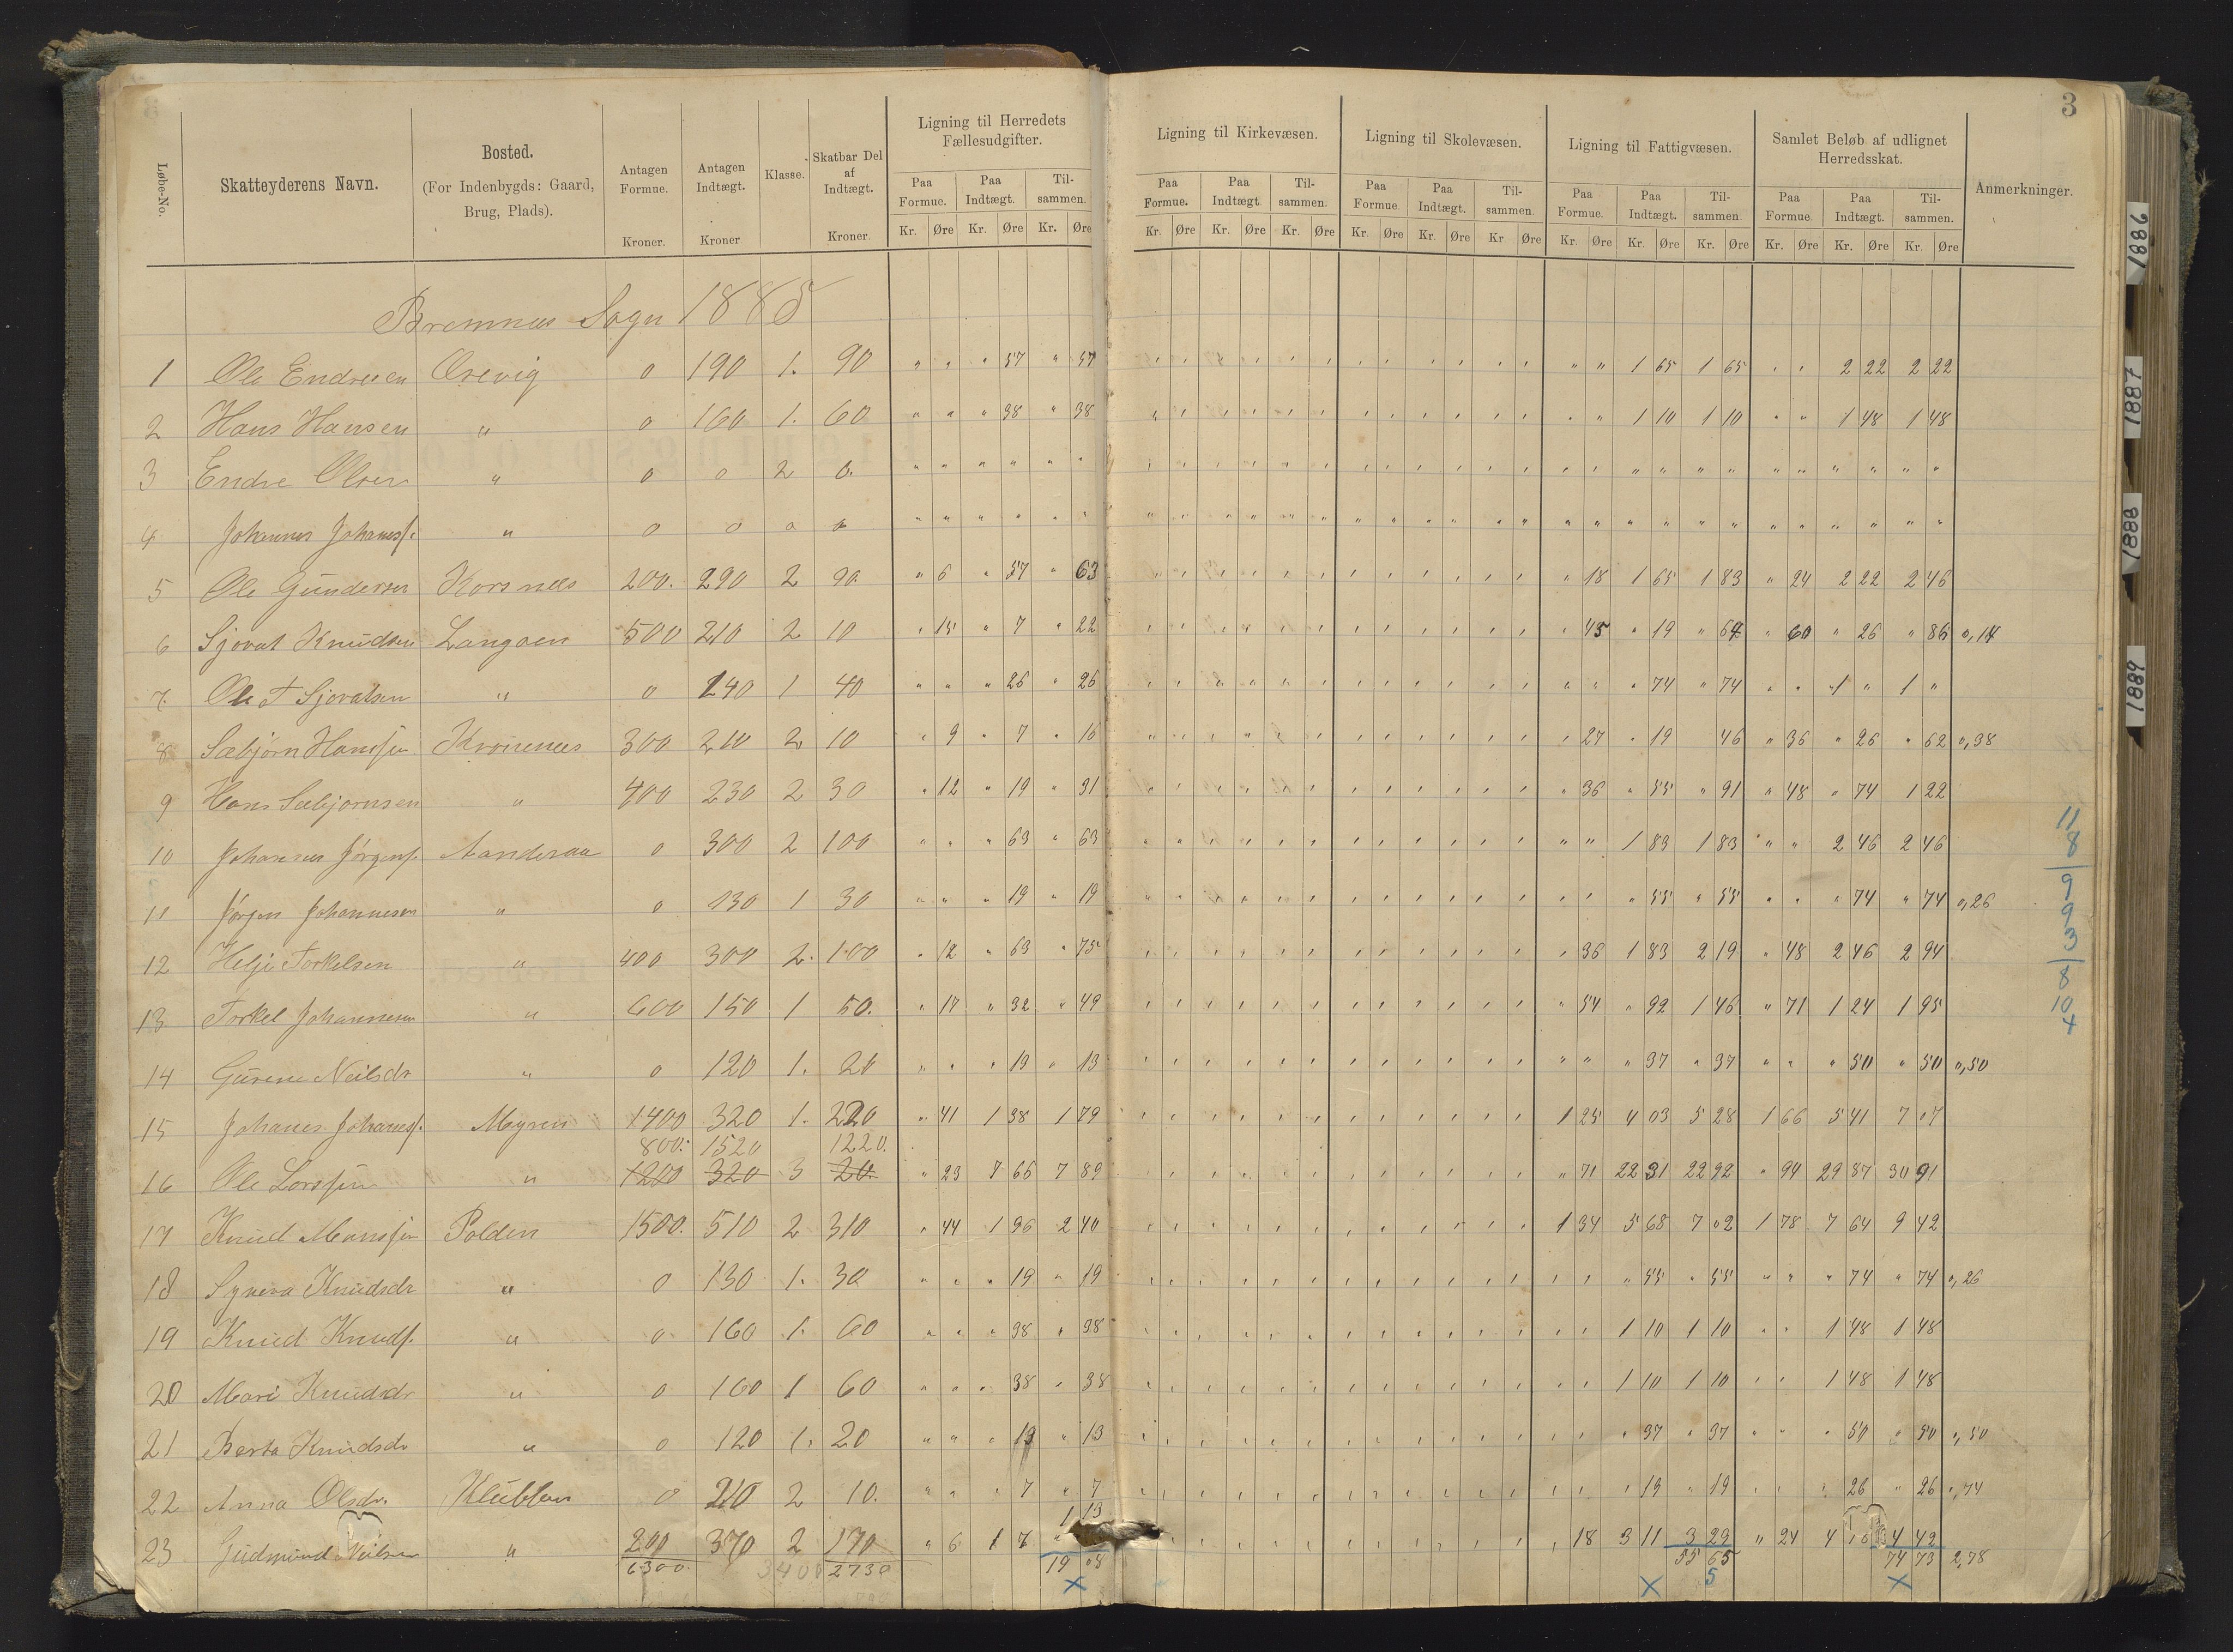 3
Løbe-No. Skatteyderens Navn. Bosted. (For Indenbygds: Gaard, Brug, Plads). Antagen Formue. Kroner. Antagen Indtægt. Kroner Klasse. Skatbar Del af Indtægt. Kroner. Ligning til Herredets Fællesudgifter. Ligning til Kirkevæsen. Ligning til Skolevæsen. Ligning til Fattigvæsen. Samlet Beløb af udlignet Herredsskat. Anmerkninger.
Paa Formue. Paa Indtægt. Til-sammen. Paa Formue. Paa Indtægt. Til-sammen. Paa Formue. Paa Indtægt. Til-sammen. Paa Formue. Paa Indtægt. Til-sammen. Paa Formue. Paa Indtægt. Til-sammen.
Kr. Øre Kr. Øre Kr. Øre Kr. Øre Kr. Øre Kr. Øre Kr. Øre Kr. Øre Kr Øre Kr. Øre Kr. Øre Kr. Øre Kr. Øre Kr. Øre Kr. Øre
Bremnes Sogn 1885
1 Ole EndresenØrevig 0 190 1. 90 " " " 57 " 57 " " 1 65 1 65 " " 2 22 2 22
2 Hans Hansen " 0 160 1. 60 " " " 38 " 38 " " 1 10 1 10 " " 1 48 1 48
3 Endre Olsen " 0 0 2 0. " " " " " " " " " " " " " " " " " "
4 Johannes Johanesf. " 0 0 0 0 " " " " " " " " " " " " " " " " " "
5 Ole Gundersen Korsnes 200. 290 2 90. " 6 " 57 " 63 " 18 1 65 1 83 " 24 2 22 2 46
6 Sjovat Knudsen Langøen 500 210 2 10 " 15 " 7 " 22 " 45 " 19 " 64 " 60 " 26 " 86 0,14
7. Ole T Sjovatsen " 0 140 1 40 " " " 26 " 26 " " " 74 " 74 " " 1 " 1 "
8 Sæbjørn Hansen Kroisenes 300 210 2 10 " 9 " 7 " 16 " 27 " 19 46 " 36 " 26 " 62 0,38
9 Hans Sæbjørnsen " 400 230 2 30 " 12 " 19 " 31 " 36 " 55 " 91 " 48 " 74 1 22
10 Johannes Jørgensf. Aanderaa 0 300 2 100 " " " 63 " 63 " " 1 83 1 83 " " 2 46 2 46
11 Jørgen Johannesen " 0 130 1 30 " " " 19 " 19 " " " 55 " 55 " " " 74 " 74 0,26
12 Helje Torkelsen " 400 300 2. 100 " 12 " 63 " 75 " 36 1 83 2 19 " 48 2 46 2 94
13 Torkel Johannesen " 600 150 1 50. " 17 " 32 " 49 " 54 " 92 1 46 " 71 1 24 1 95
14 Gurine Neilsdr " 0 120 1. 20 " " " 13 " 13 " " " 37 " 37 " " " 50 " 50 0,50
15 Johanes Johanesf. Myren 1400 320 1. 220 " 41 1 38 1 79 1 25 4 03 5 28 1 66 5 41 7 07
800. 1520 1220.
16 Ole Larssen " 1200 320 3 20. " 23 7 66 7 89 " 71 22 31 22 92 " 94 29 87 30 91
17 Knud Monssen Polden 1500. 510 2 310 " 44 1 96 2 40 1 34 5 68 7 02 1 78 7 64 9 42
18 Syneva Knudsdr " 0 130 1. 30 " " " 19 " 19 " " " 55 " 55 " " " 74 " 74 0,26
19 Knud Knudf. " 0 160 1. 60 " " " 38 " 38 " " 1 10 1 10 " " 1 48 1 48
20 Mari Knudsdr " 0 160 1 60 " " " 38 " 38 " " 1 10 1 10 " " 1 48 1 48
21 Berta Knudsdr " 0 120 1. 20 " " " 13 " 13 " " " 37 " 37 " " " 50 " 50 0,50
22 Anna Olsdr. Klubben 0 210 2 10. " " " 7 " 7 " " " 19 " 19 " " " 26 " 26 0,74
1 13
23 Gudmund Neilsen " 200 370 2 170 " 6 1 7 " 18 3 11 3 29 " 24 4 18 4 42
6300. 3400 2730 19 08 55 65 74 73 2,78
x x 5 x
11
8
9
9
3
8
10
4
1886
1887
1888
1889